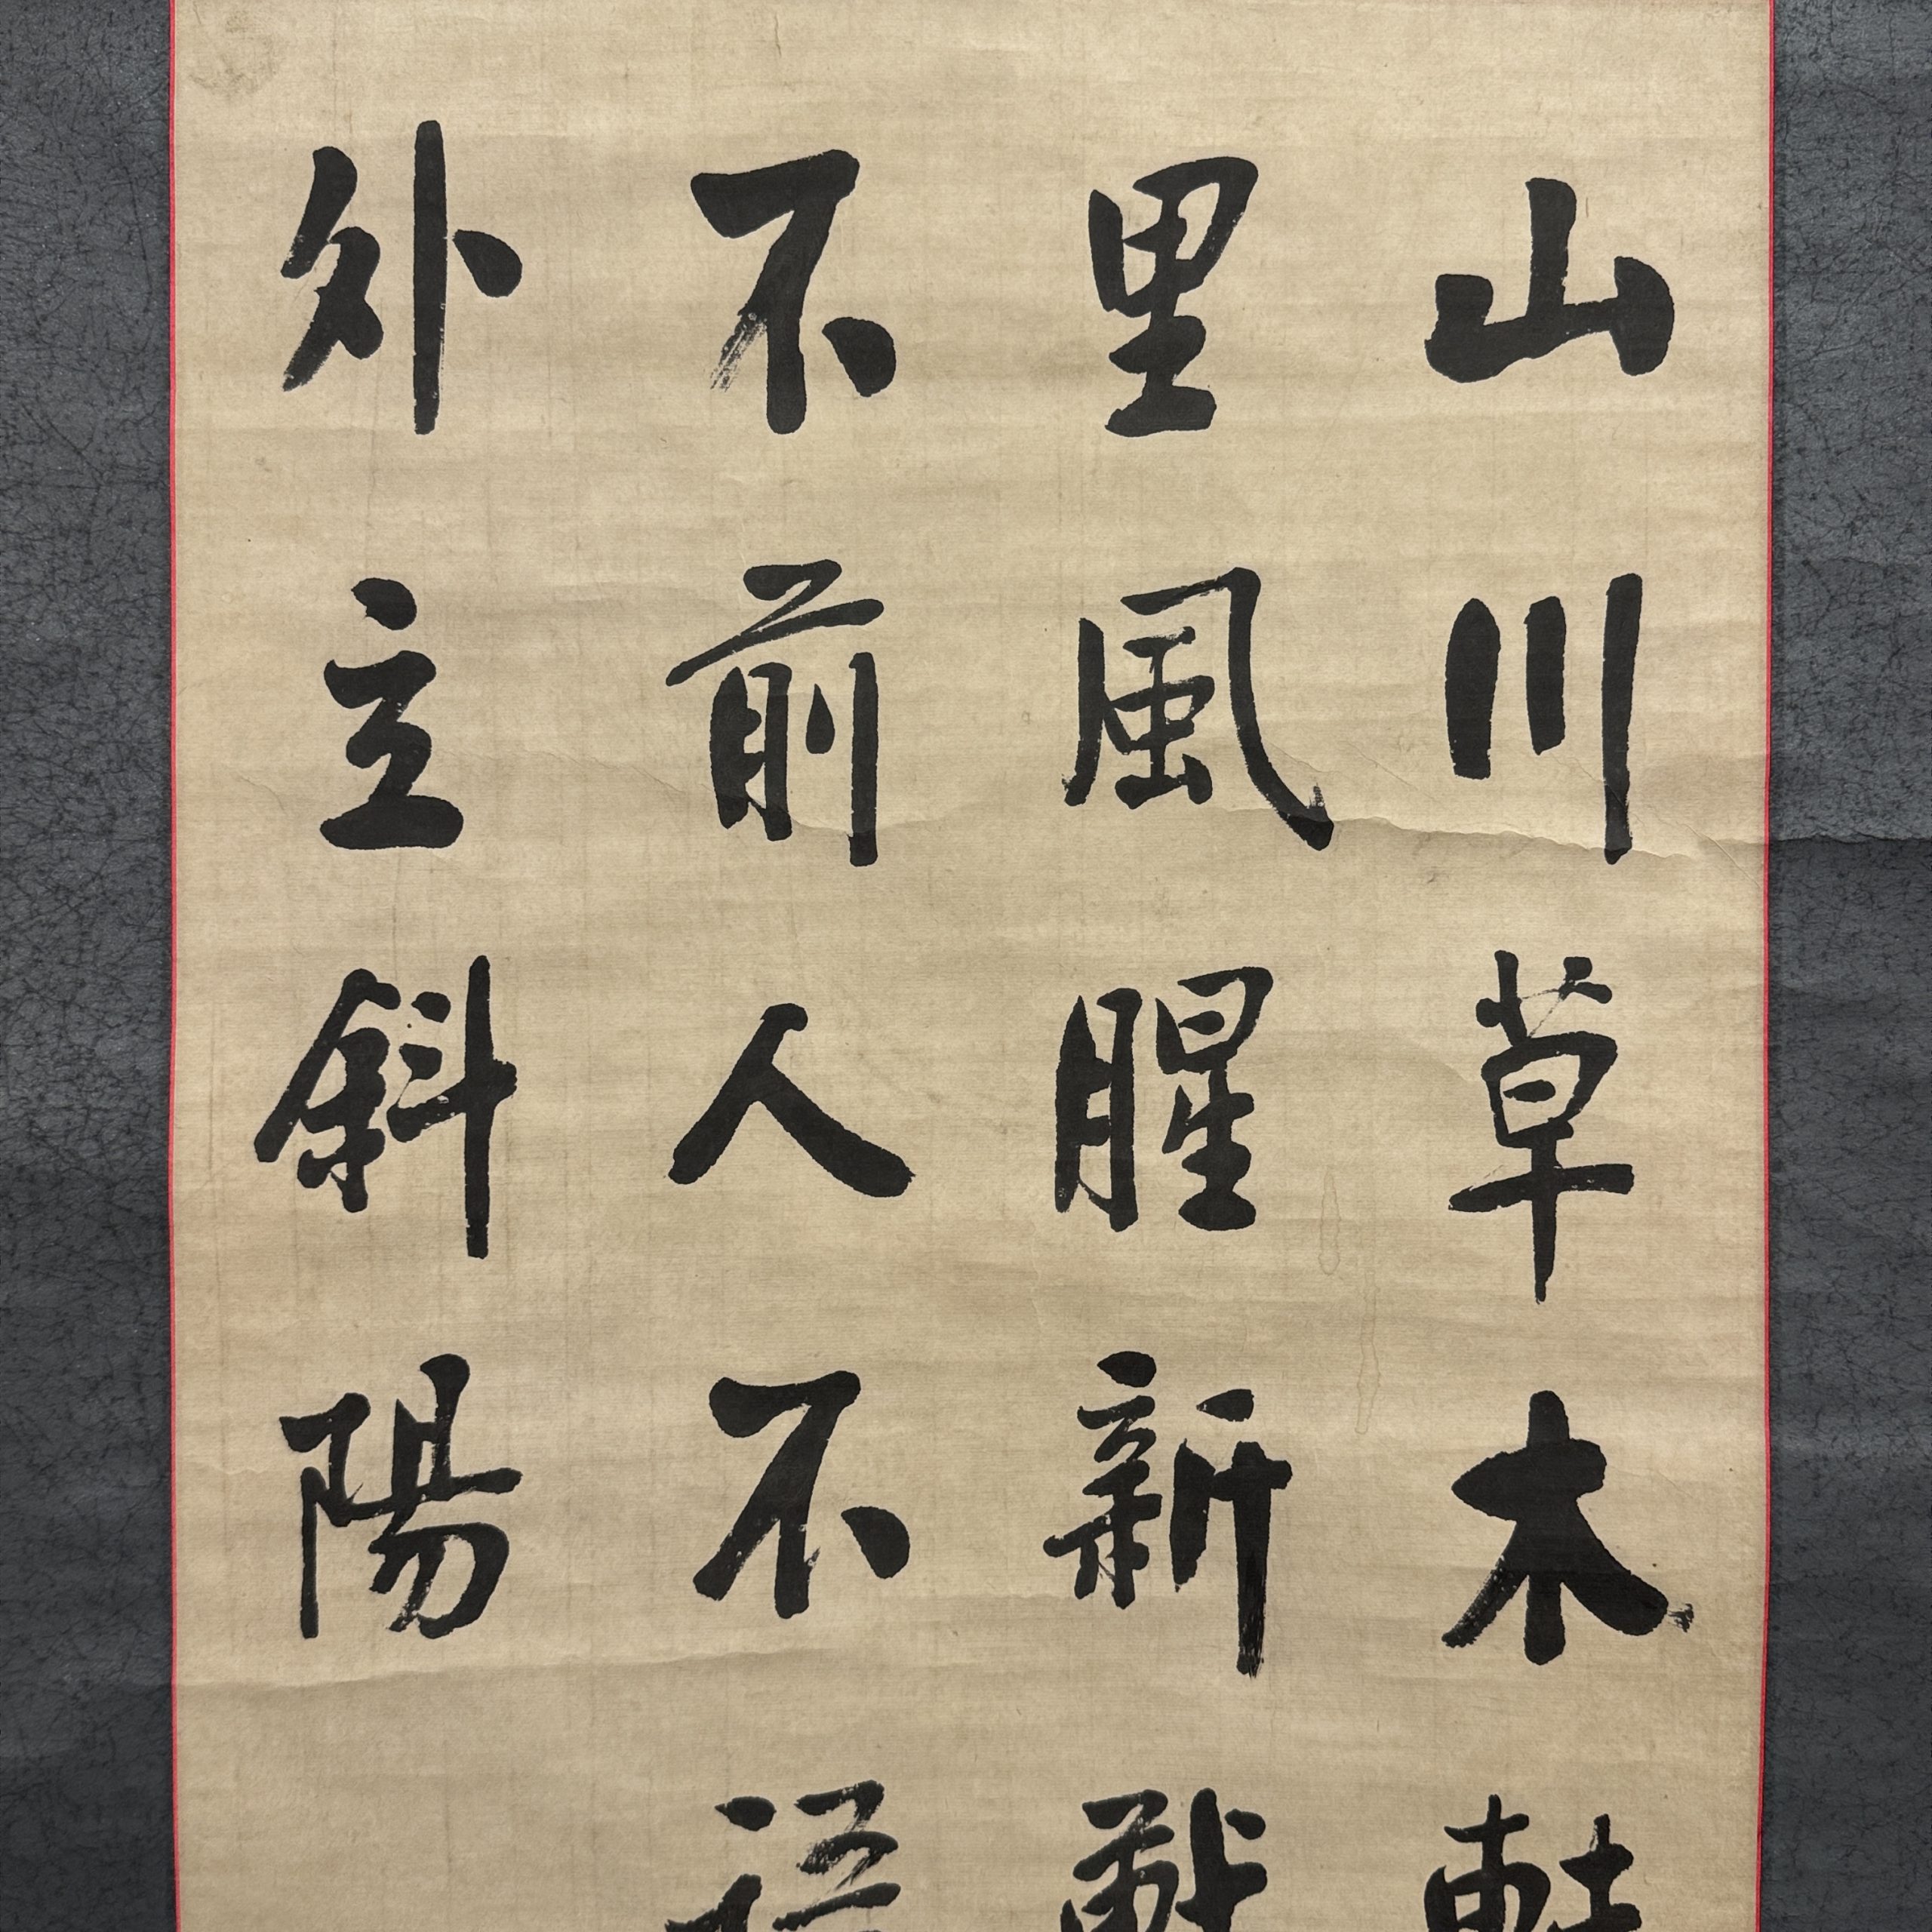 山川草木轉
里風腥新戰
不前人不
外立斜陽